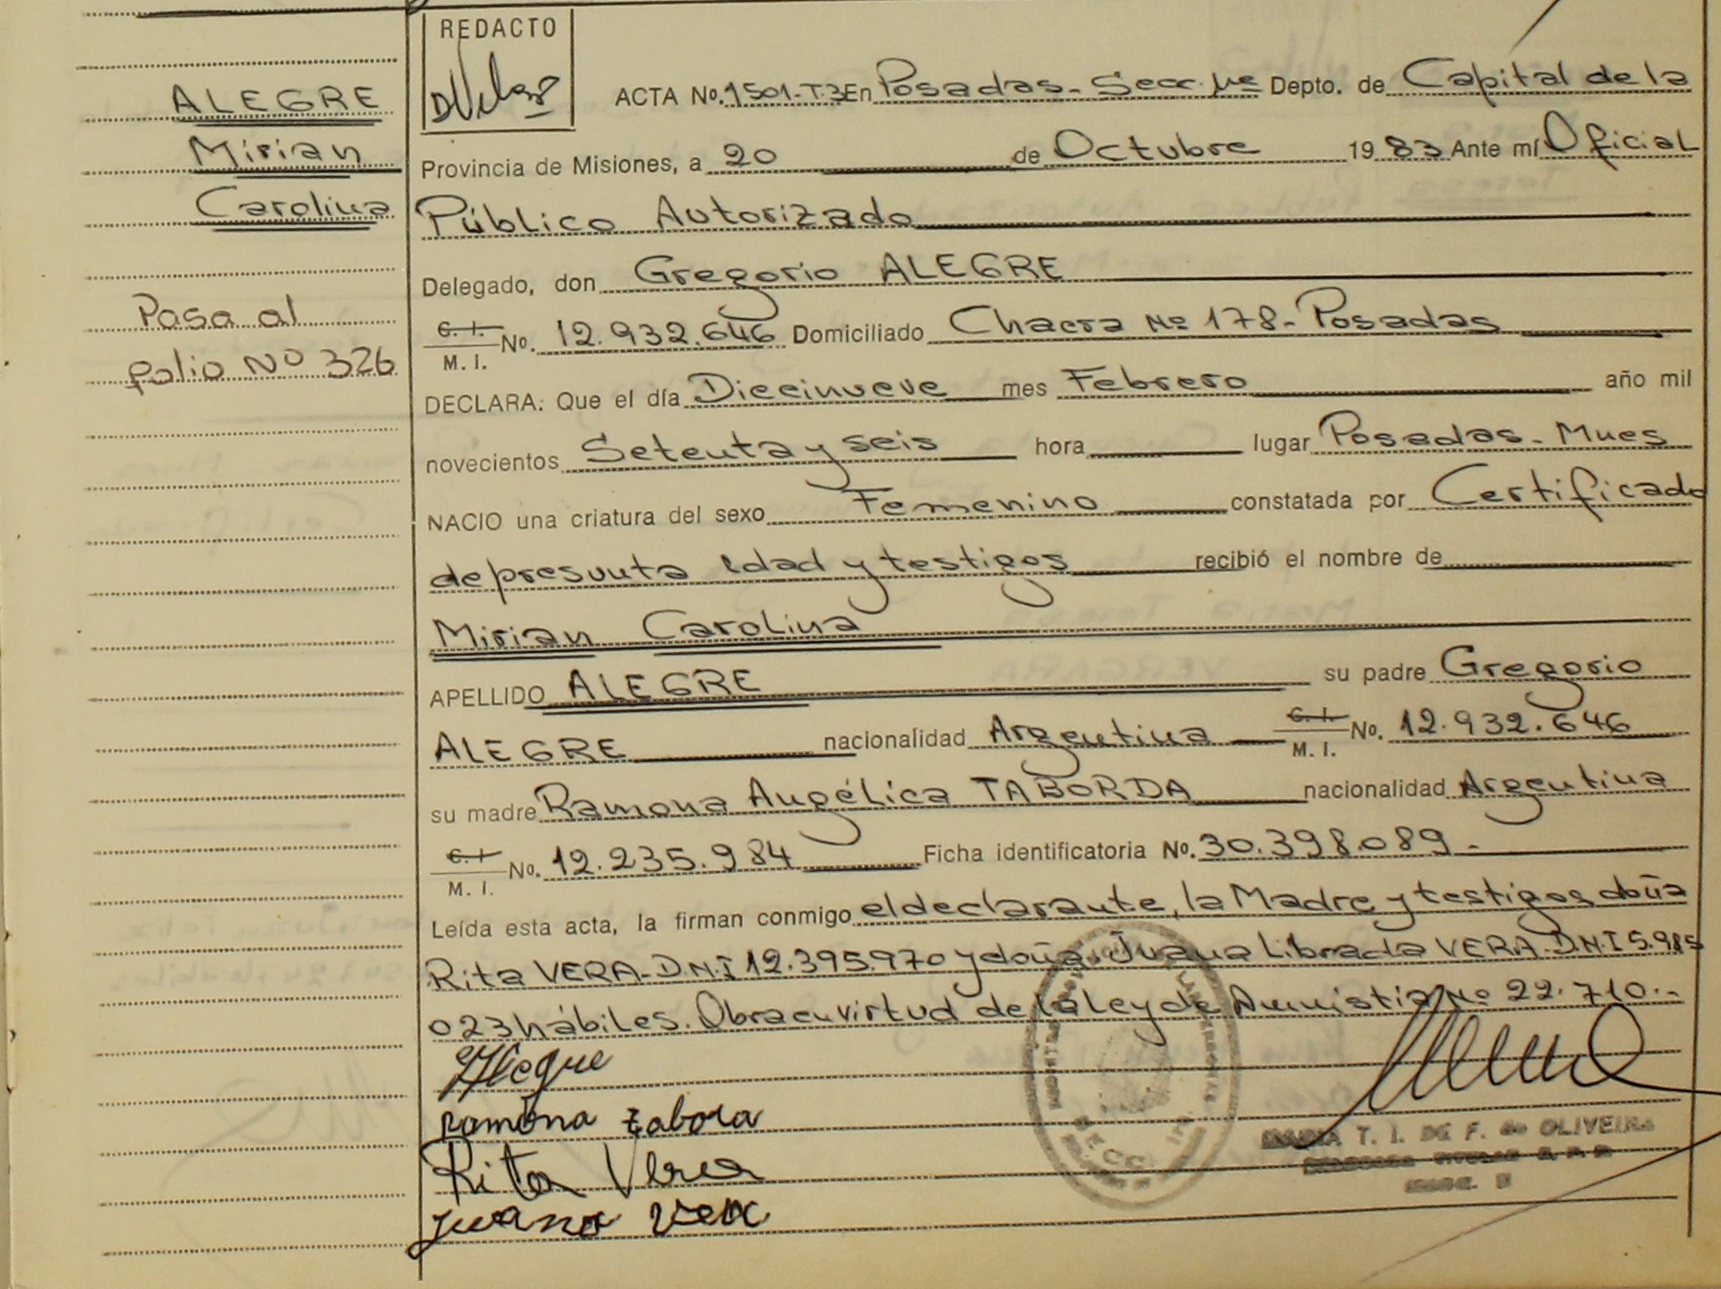 ALEGRE
Mirian
Carolina
Pasa al
folio Nº 326
REDACTO
ACTA Nº. 1501-T.3 En Posadas - Secc. Depto. de Capital de la
Provincia de Misiones, a 20 de Octubre 19 83 Ante mí Oficial
Público Autorizado
Delegado, don Gregorio ALEGRE
C. I. / M. I. Nº. 12.932.646 Domiciliado Chacra Nº 178 - Posadas
DECLARA: Que el día Diecinueve mes Febrero año mil
novecientos Setenta y seis hora lugar Posadas - Mnes
NACIO una criatura del sexo Femenino constatada por Certificado
de presunta edad y testigos recibió el nombre de
Mirian Carolina
APELLIDO ALEGRE su padre Gregorio
ALEGRE nacionalidad Argentina C. I. / M. I. Nº. 12.932.646
su madre Ramona Angélica TABORDA nacionalidad Argentina
C. I / M. I. Nº. 12.235.984 Ficha identificatoria Nº. 30.398.089 -
Leída esta acta, la firman conmigo el declarante, la Madre y testigos doña
Rita VERA - D.N.I 12.395.970 y doña Juana Librada VERA - D.N.I 5.985
023 hábiles. Obra en virtud de la ley de Amnistia Nº 22.710.-
Ramona tabora
Rita Vera
Juana vera
MARIA T. I. DE F. de OLIVEIRA